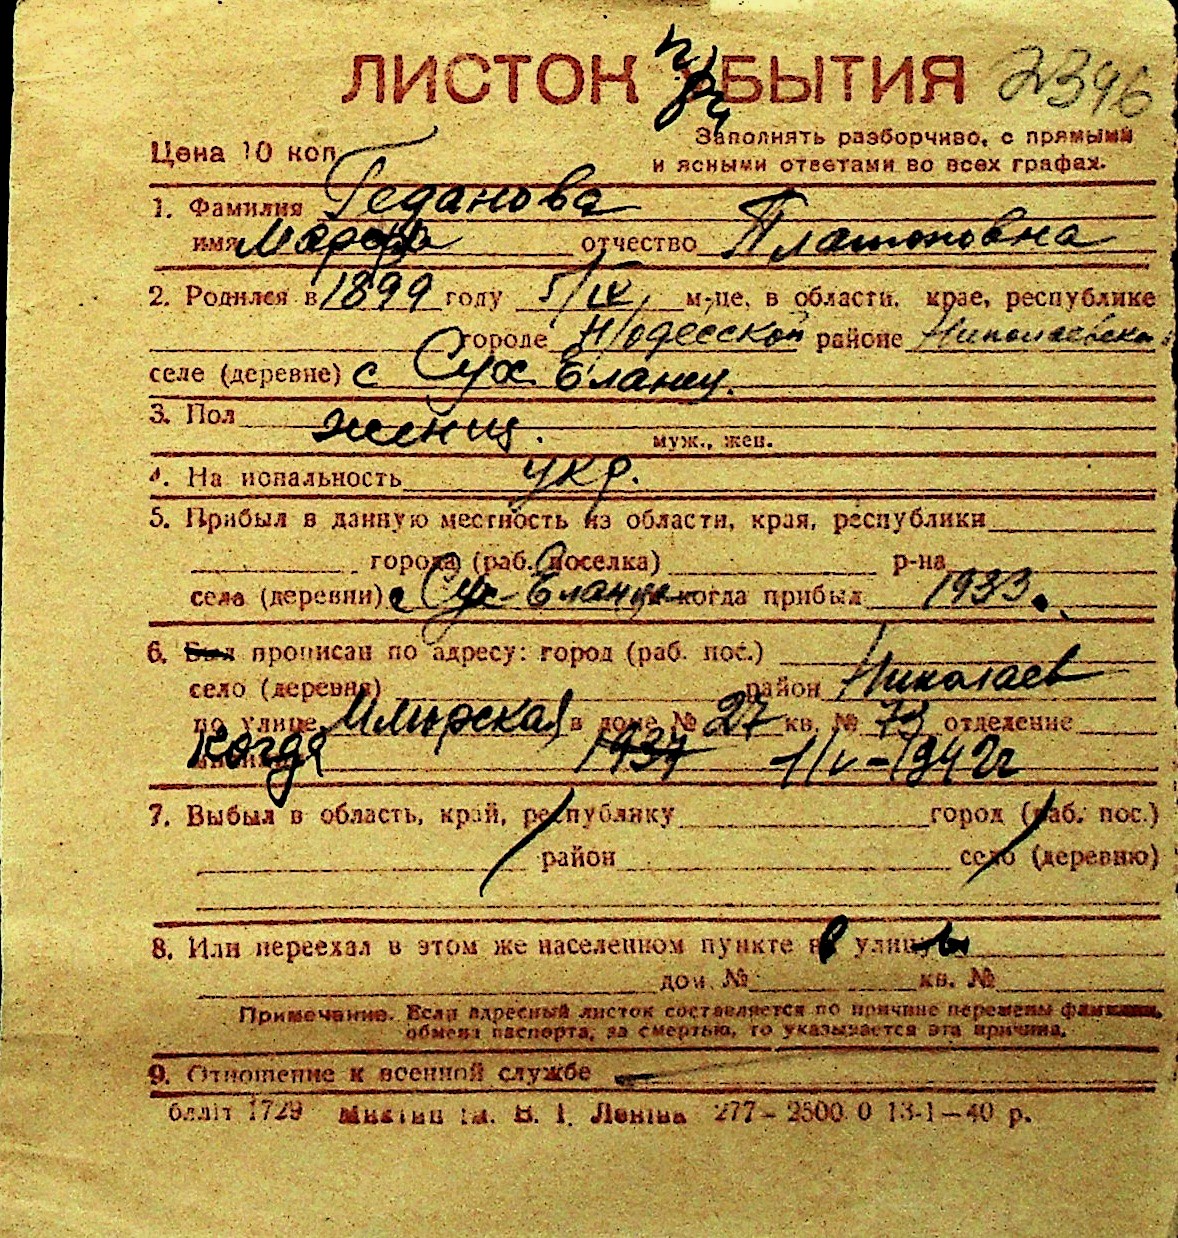 ЛИСТОК ПРИБЫТИЯ 2396
Цена 10 коп.
Заполнять разборчиво, с прямыми
и ясными ответами во всех графах.
1. Фамилия Геданова
имя Марфа отчество Платоновна
2. Родился в 1899 году 5/IX м-це, в области, крае, республике
городе Н/Одесском районе Николаевско
селе (деревне) с Сух Еланец.
3. Пол женщ. муж., жен.
4. Национальность укр.
5. Прибыл в данную местность из области, края, республики
города (раб. поселка) р-на
села (деревни) с Сух Еланца когда прибыл 1933.
6. Был прописан по адресу: город (раб. пос.)
село (деревня) район Николаев
по улице в доме № 27 кв. № 73 отделение
когда 1937 1/V-1942г
7. Выбыл в область, край, республику город (раб. пос.)
район село (деревню)
8. Или переехал в этом же населенном пункте в улицы
дом № кв. №
Примечание. Если адресный листок составляется по причине перемены фамилии,
обмена паспорта, за смертью, то указывается эта причина.
9. Отношение к военной службе —
бланк 1729 ім. В. І. Леніна 277-2500 0 13-1-40 р.